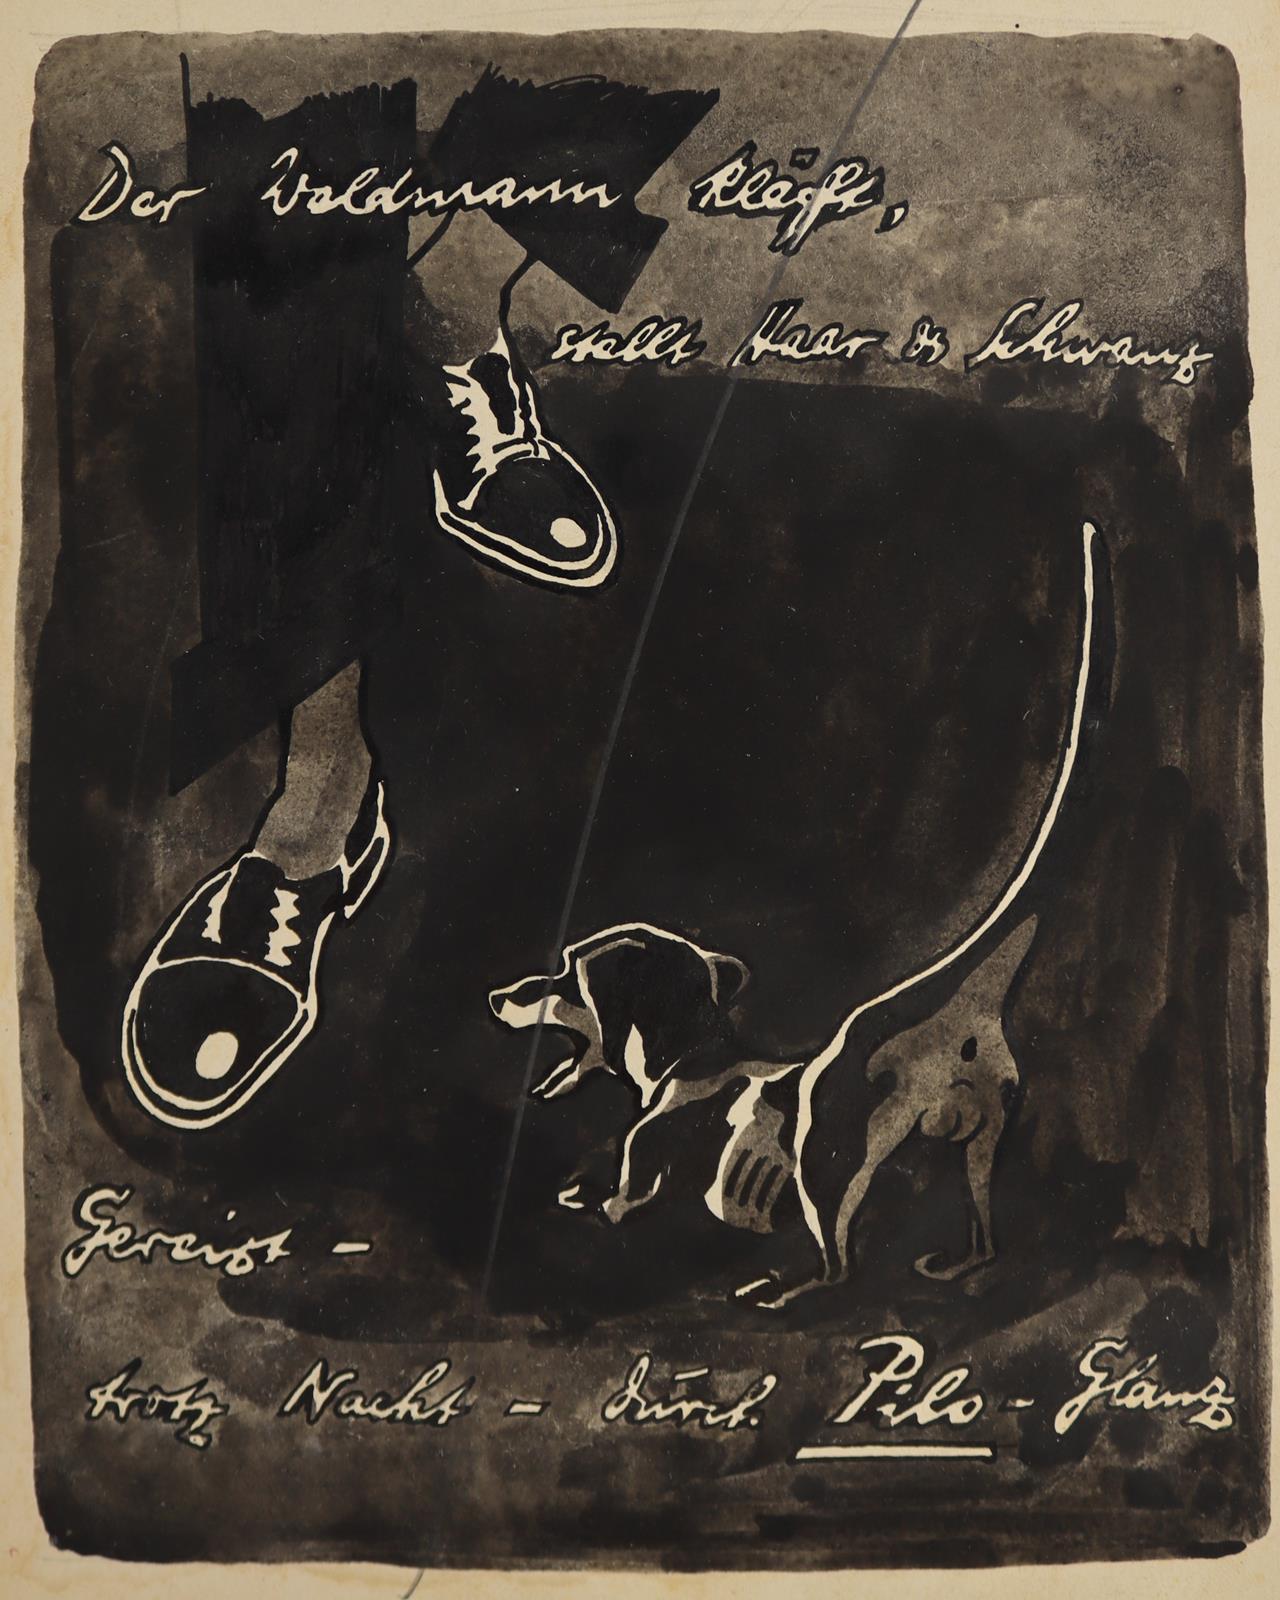 Der Waldmann kläfft,
stellt Haar & Schwanz
Gereizt -
trotz Nacht - durch Pilo - Glanz